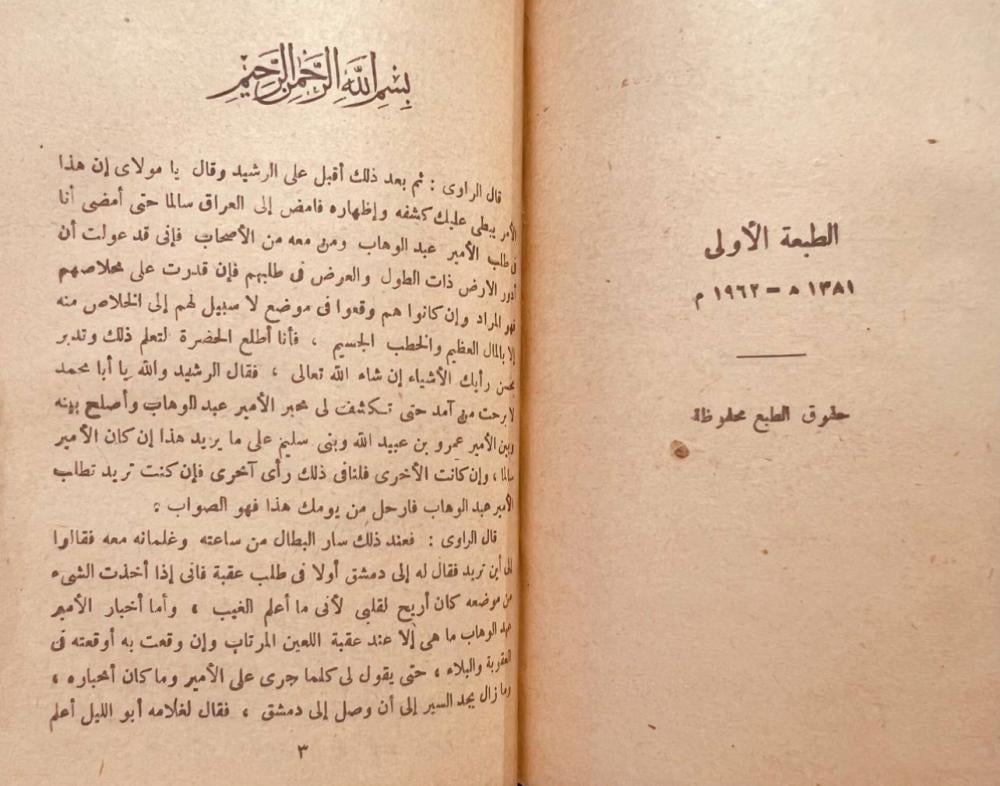 الطبعة الأولى
١٣٨١ ه – ١٩٦٢ م
حقوق الطبع محفوظة
بسم الله الرحمن الرحيم
قال الراوى : ثم بعد ذلك أقبل على الرشيد وقال يا مولاى إن هذا
الأمر يبطى عليك كشفه وإظهاره فامض إلى العراق سالما حتى أمضى أنا
فى طلب الأمير عبد الوهاب ومن معه من الأصحاب فإنى قد عولت أن
أدور الارض ذات الطول والعرض فى طلبهم فإن قدرت على خلاصهم
فهو المراد وإن كانوا هم وقعوا فى موضع لا سبيل لهم إلى الخلاص منه
إلا بالمال العظيم والخطب الجسيم ، فأنا أطلع الحضرة لتعلم ذلك وتدبر
بحسن رأيك الأشياء إن شاء الله تعالى ، فقال الرشيد والله يا أبا محمد
لا برحت من آمد حتى تكشف لى خبر الأمير عبد الوهاب وأصلح بينه
وبين الأمير عمرو بن عبيد الله وبنى سليم على ما يريد هذا إن كان الأمير
سالما ، وإن كانت الأخرى فلنافى ذلك رأى آخرى فإن كنت تريد تطلب
الأمير عبد الوهاب فارحل من يومك هذا فهو الصواب .
قال الراوى : فعند ذلك سار البطال من ساعته وغلمانه معه فقالوا
إلى أين تريد فقال له إلى دمشق أولا فى طلب عقبة فانى إذا أخذت الشىء
من موضعه كان أريح لقلبى لأنى ما أعلم الغيب ، وأما أخبار الأمير
عبد الوهاب ما هى إلا عند عقبة اللعين المرتاب وإن وقعت به أوقعته فى
العقوبة والبلاء ، حتى يقول لى كلما جرى على الأمير وما كان أخباره ،
وما زال يجد السير إلى أن وصل إلى دمشق ، فقال لغلامه أبو الليل أعلم
٣